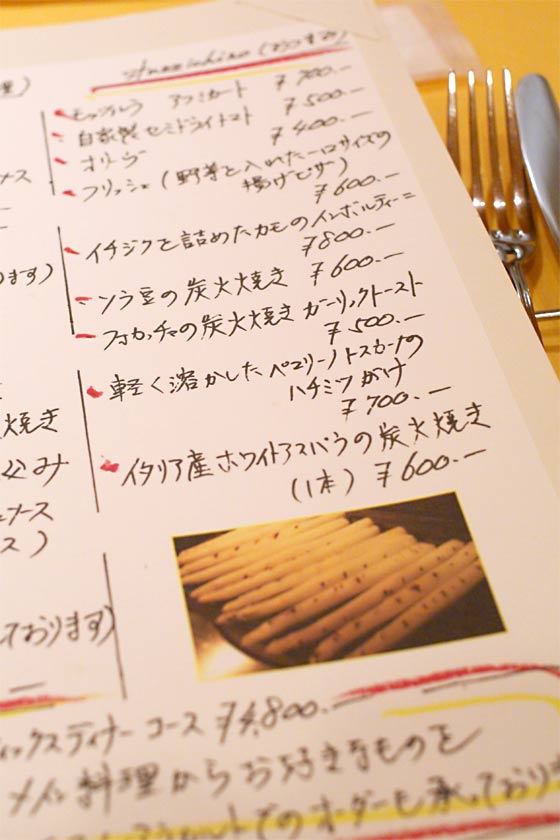 Stuzzichino (おつまみ)
モッツァレラ アフミカート ¥700.—
自家製セミドライトマト ¥500.—
オリーブ ¥400.—
フリッジェ (野菜と入れた一口サイズの
揚げピザ) ¥600.—
イチジクを詰めたカモのインボルティーニ
¥800.—
ソラ豆の炭火焼き ¥600.—
フォカッチャの炭火焼き ガーリックトースト
¥500.—
軽く溶かした ペコリーノトスカーナの
ハチミツがけ
¥700.—
イタリア産ホワイトアスパラの炭火焼き
(1本) ¥600.—
ース
ります)
焼き
込み
ソース
ス)
ております)
ィックスディナーコース ¥4,800.—
メイン料理からお好きなものを
でのオーダーも承っており